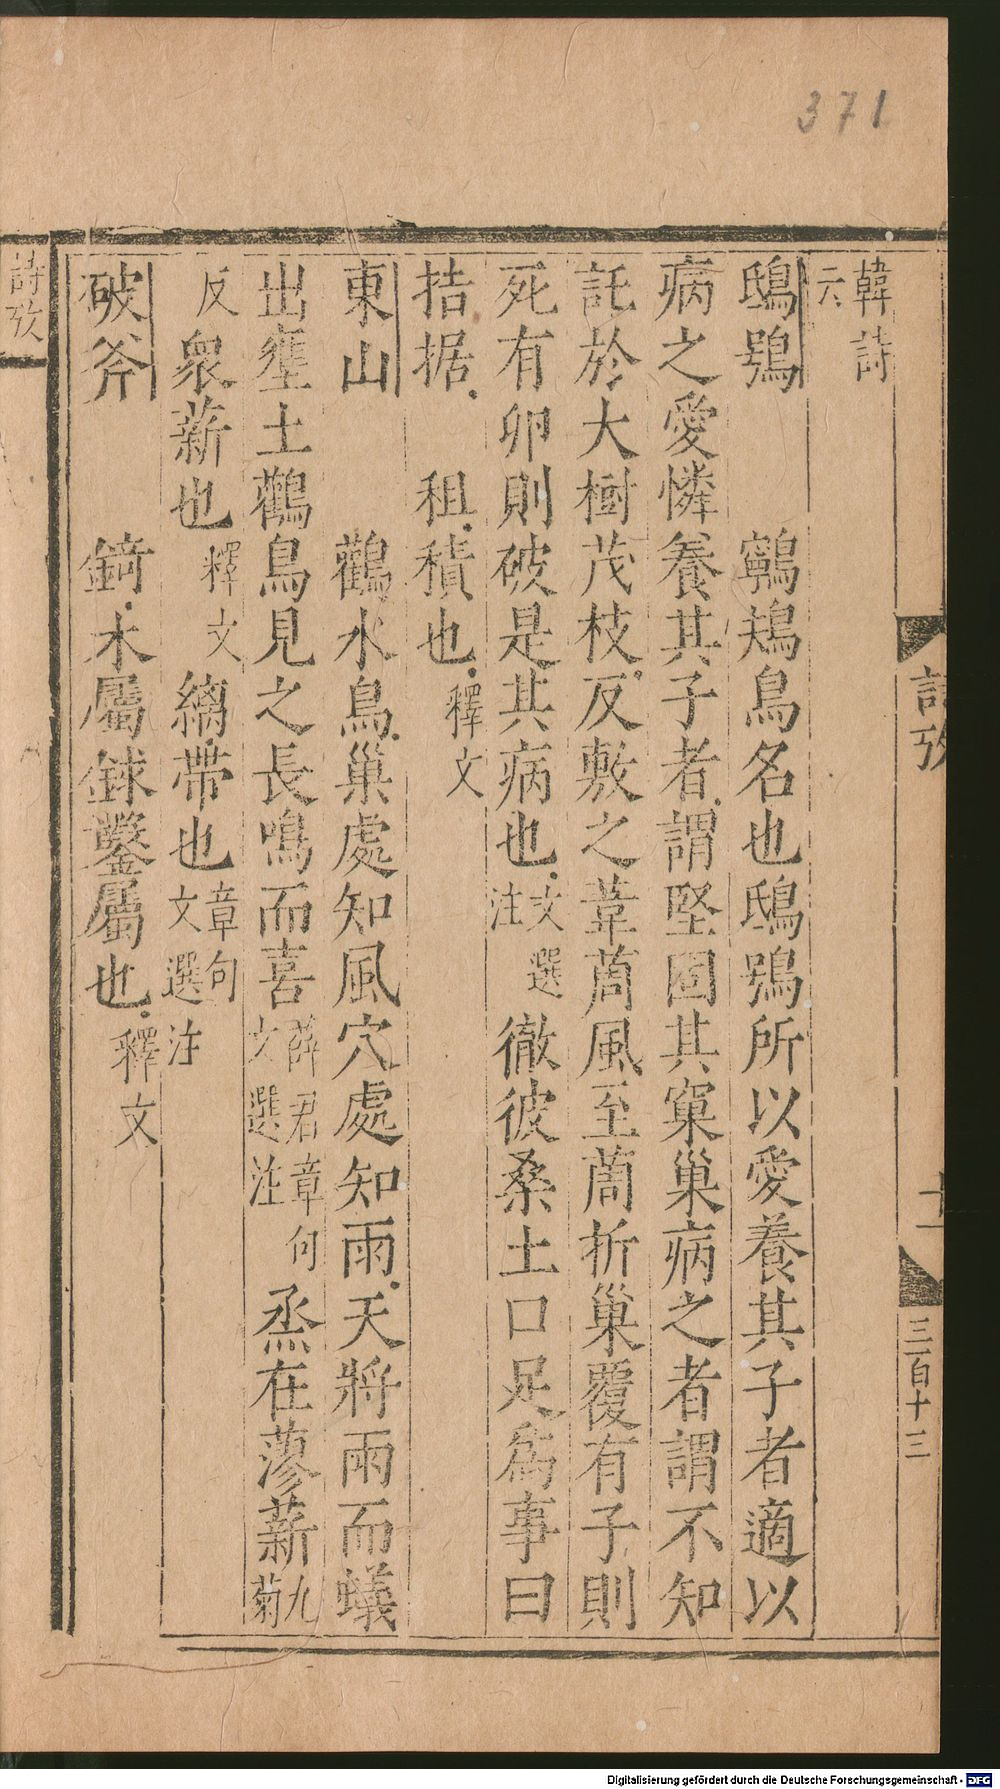 371
韓詩
云
鴟鴞 鸋鴂鳥名也鴟鴞所以愛養其子者適以
病之愛憐養其子者謂堅固其窠巢病之者謂不知
託於大樹茂枝反敷之葦䔥風至䔥折巢覆有子則
死有卵則破是其病也文選注 徹彼桑土口足為事曰
拮据 租積也釋文
東山 鸛水鳥巢處知風穴處知雨天將雨而蟻
出壅土鸛鳥見之長鳴而喜薛君章句文選注 烝在蓼薪九菊
反衆薪也釋文 縭帶也章句文選注
破斧 錡木屬銶鑿屬也釋文
詩攷
十一
三百十三
詩攷
Digitalisierung gefördert durch die Deutsche Forschungsgemeinschaft - DFG